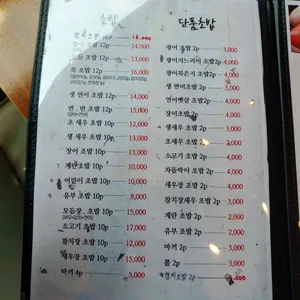 초밥
초밥 10p 16,000
초밥 12p 14,000
초밥 12p 13,000
특 초밥 12p 16,000
생 연어 초밥 12p 14,000
반 . 반 초밥 12p 15,000
초 새우 초밥 10p 13,000
생 새우 초밥 10p 14,000
장어 초밥 10p 13,000
계란 초밥 10p 10,000
어린이 초밥 10p 10,000
유부 초밥 10p 8,000
모듬장 . 초밥 10p 15,000
소고기 초밥 10p 17,000
참치장 초밥 10p 15,000
새우장 초밥 10p 15,000
마끼 4p 5,000
단품초밥
광어 초밥 2p 3,000
광어지느러미 초밥 2p 4,000
광어묵은지 초밥 2p 4,000
생 연어 초밥 2p 3,000
연어뱃살 초밥 2p 4,000
장어초밥 2p 4,000
생새우 초밥 2p 3,000
초새우 초밥 2p 3,000
소고기 초밥 2p 4,000
차돌박이 초밥 2p 4,000
새우장 초밥 2p 4,000
참치장새우 초밥 2p 3,000
계란 초밥 2p 2,000
유부 초밥 2p 2,000
마끼 2p 3,000
롤 2p 3,000
초밥 2p